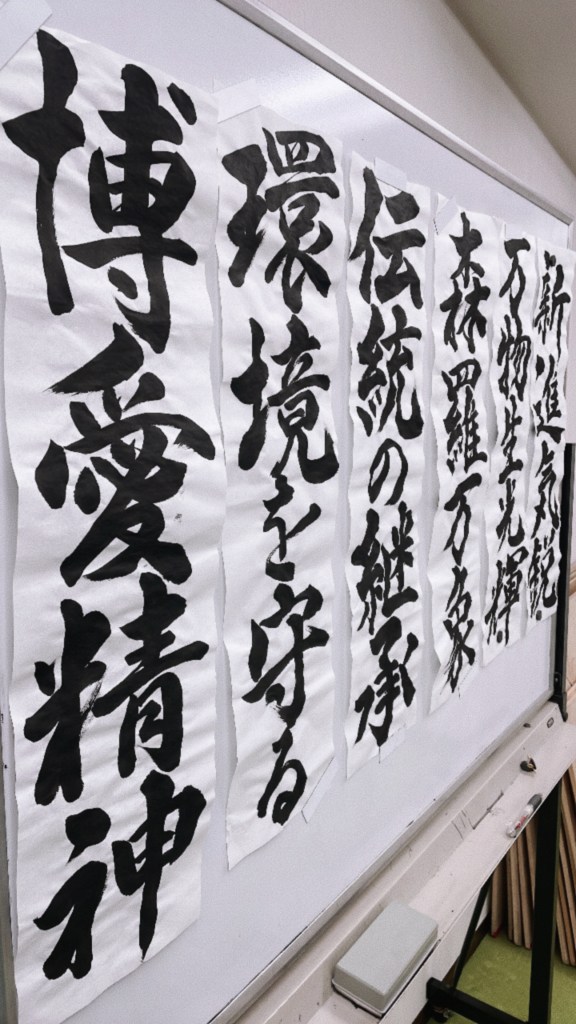 新進気鋭
万物生光輝
森羅万象
伝統の継承
環境を守る
博愛精神